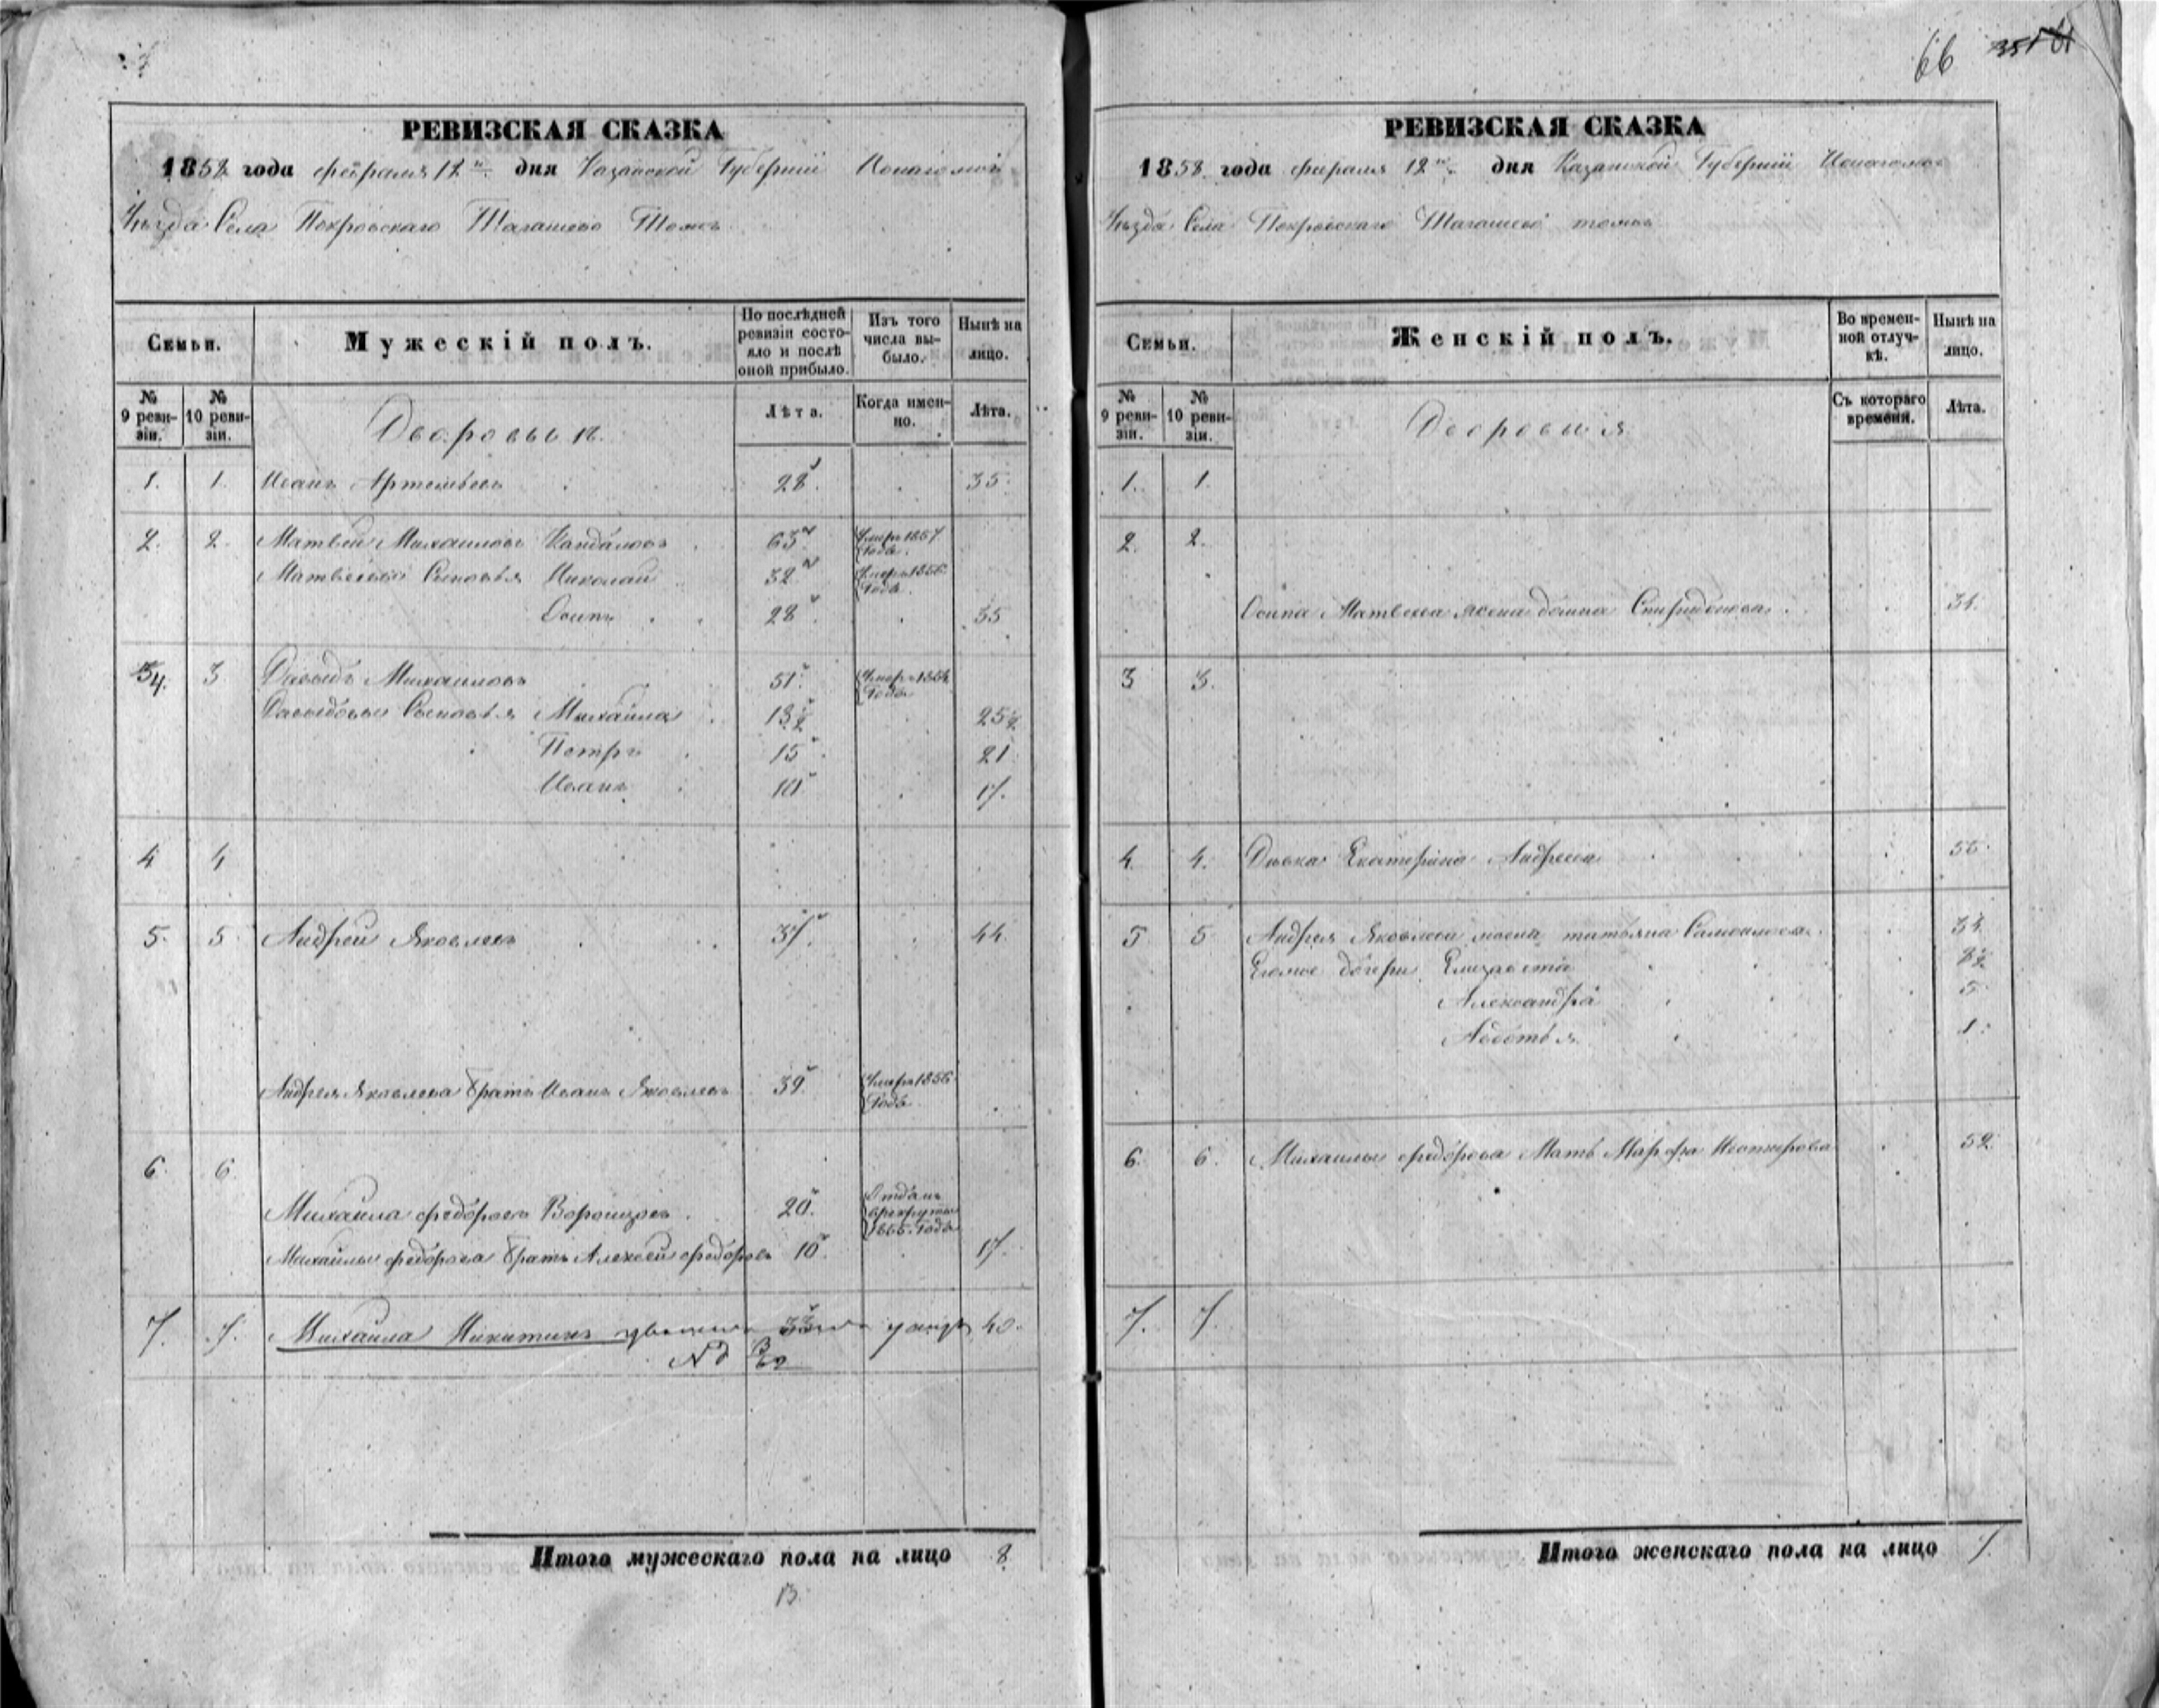 66
РЕВИЗСКАЯ СКАЗКА
1858 года февраля 12 дня Казанской Губернии
Уѣзда Села Покровскаго Шагашево тожъ
Семьи.
Мужескій полъ.
По послѣдней ревизіи состояло и послѣ оной прибыло.
Изъ того числа выбыло.
Нынѣ на лицо.
№ 9 ревизіи.
№ 10 ревизіи.
Дворовые
Лѣта.
Когда именно.
Лѣта.
1. 1. Иванъ Артемьевъ 28. 35.
2. 2. Матвей Михаиловъ 63 Умеръ 1857 Года.
Матвеевы Сыновья Николай 32 Умеръ 1856 Года.
Осипъ 28. 35
3 Давыдъ Михаиловъ 51. Умеръ Года
Давыдовы Сыновья Михайла 25½
Петръ 15 21
Иванъ 10 17.
4 4
5. 5 Андрей Яковлевъ 37. 44.
Андрея Яковлева братъ Иванъ Яковлевъ 39. Умеръ Года
6. 6.
Михайла Федоровъ 20. Отданъ Года
Михайлы Федорова братъ Алексей Федоровъ 10. 17.
7. 7. Михайла Никитинъ 40.
Итого мужескаго пола на лицо 8.
РЕВИЗСКАЯ СКАЗКА
1858 года февраля 12 дня Казанской Губернии
Уѣзда Села Покровскаго Шагашево тожъ
Семьи.
Женскій полъ.
Во временной отлучкѣ.
Нынѣ на лицо.
№ 9 ревизіи.
№ 10 ревизіи.
Дворовыя
Съ котораго времени.
Лѣта.
1. 1.
2. 2.
Осипа Матвеева жена Домна Спиридонова. 34.
3 3.
4. 4. Девка Екатерина Андреева 55.
5 5 Андрея Яковлева жена татьяна Самойлова. 34.
дочери Елизавета 8½
Александра 5
Авдотья 1.
6. 6. Михаилы Федорова Мать Марфа 52
7. 7.
Итого женскаго пола на лицо 7.